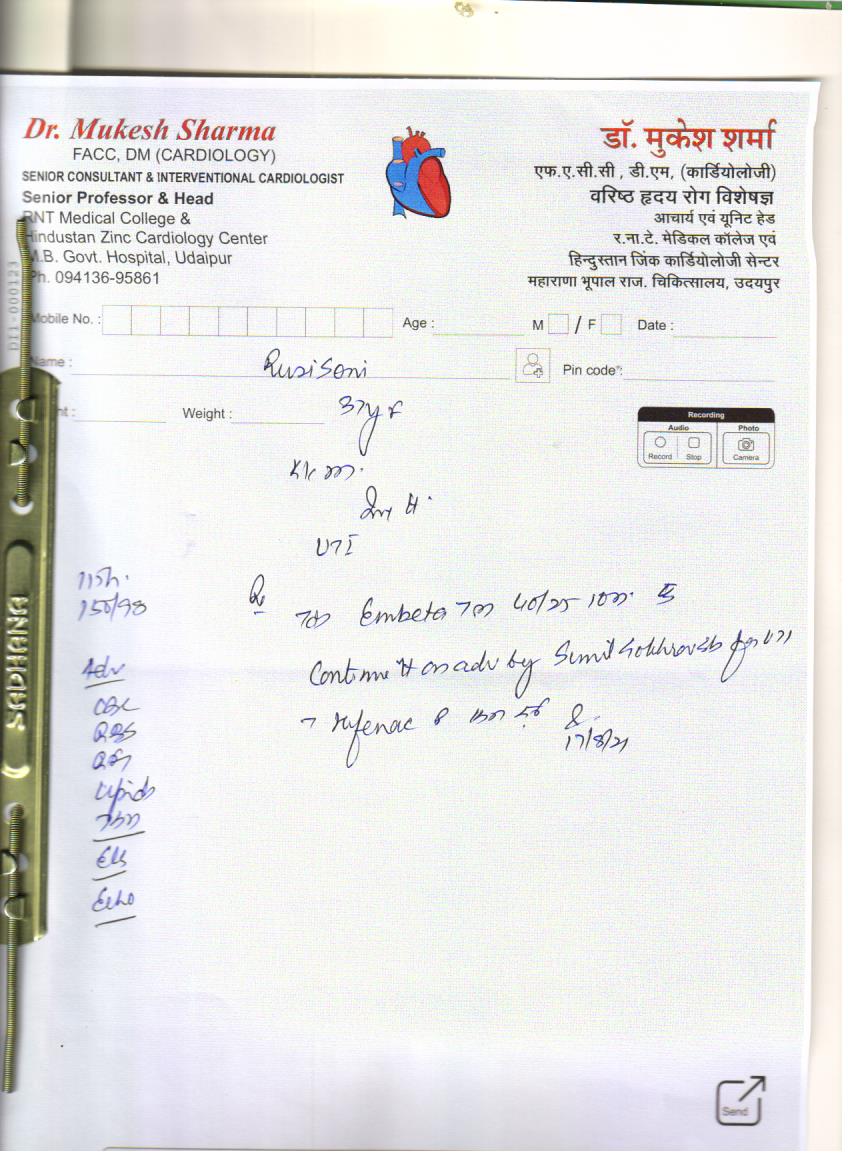 Dr. Mukesh Sharma
FACC, DM (CARDIOLOGY)
SENIOR CONSULTANT & INTERVENTIONAL CARDIOLOGIST
Senior Professor & Head
RNT Medical College &
Hindustan Zinc Cardiology Center
M.B. Govt. Hospital, Udaipur
Ph. 094136-95861
डॉ. मुकेश शर्मा
एफ.ए.सी.सी , डी.एम, (कार्डियोलोजी)
वरिष्ठ हृदय रोग विशेषज्ञ
आचार्य एवं यूनिट हेड
र.ना.टे. मेडिकल कॉलेज एवं
हिन्दुस्तान जिंक कार्डियोलोजी सेन्टर
महाराणा भूपाल राज. चिकित्सालय, उदयपुर
DI1-000123
Mobile No. :
Age :
M / F
Date :
Name :
Soni
Pin code*:
Weight :
37y F
Recording
Audio
Photo
Record
Stop
Camera
UTI
150/98
Embeta 40/25
Adv
Continue on adv by for UTI
CBC
RBS
17/8/21
Lipids
Echo
SADHANA
Send